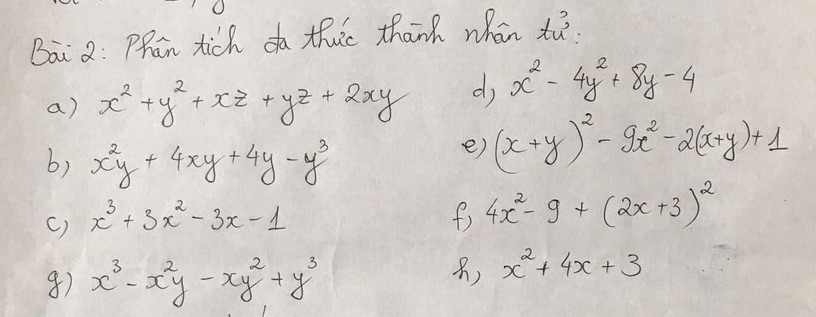 Bài 2: Phân tích đa thức thành nhân tử:
a) x² + y² + xz + yz + 2xy
d) x² - 4y² + 8y - 4
b) x²y + 4xy + 4y - y³
e) (x+y)² - 9x² - 2(x+y) + 1
c) x³ + 3x² - 3x - 1
f) 4x² - 9 + (2x+3)²
g) x³ - x²y - xy² + y³
h) x² + 4x + 3